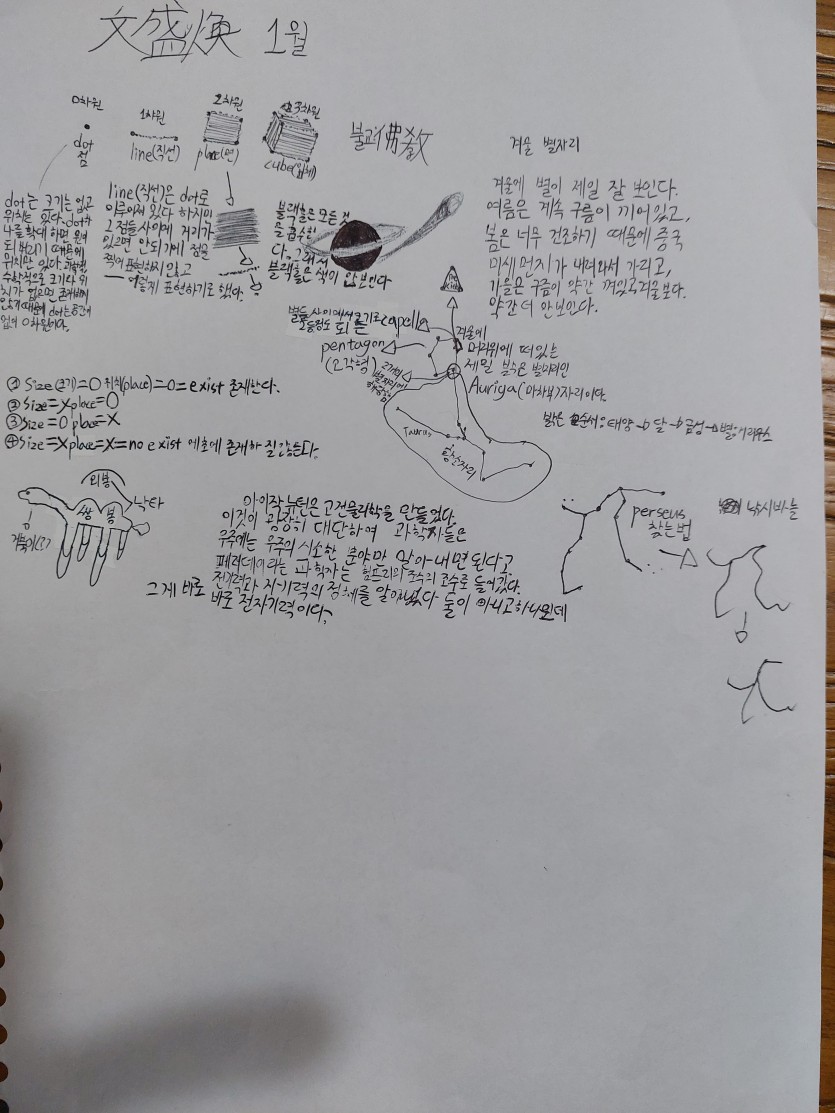 文盛煥 1월
0차원
dot
점
1차원
line(직선)
2차원
plane(면)
3차원
cube(입체)
불교佛教
겨울 별자리
dot는 크기는 없고
위치는 있다. dot가
나를 확대 하면 원이
되 버리기 때문에
위치만 있다.
수학적으로 크기와 위
치가 없으면 존재하지
않기 때문에 dot는
없어 0차원이다.
line(직선)은 dot로
이루어져 있다 하지만
그 점들 사이에 거리가
있으면 안되기에 점을
찍어 표현하지 않고
이렇게 표현하기로 했다.
블랙홀은 모든 것
을 흡수한
다. 그래서
블랙홀은 색이 안보인다
겨울에 별이 제일 잘 보인다.
여름은 계속 구름이 끼어있고,
봄은 너무 건조하기 때문에 중국
미세먼지가 내려와서 가리고,
가을은 구름이 약간 껴있고 겨울보다.
약간 더 안보인다.
the kids
별들 사이에서 크기로 capella
오등정도 되는
pentagon
(오각형)
2개의
별자리에
겨울에
머리위에 떠있는
제일 밝은 별자리인
Auriga(마차부)자리이다.
Taurus
황소자리
밝은 순서: 태양→달→금성→별:시리우스
① Size(크기)=0 위치(place)=0=exist 존재한다.
② Size=x place=0
③ Size=0 place=x
④ Size=x place=x=no exist 애초에 존재하질 않는다.
외봉
쌍봉
낙타
거북이(?)
아이작 뉴턴은 고전물리학을 만들었다.
이것이 굉장히 대단하여 과학자들은
우주에는 우주의 사소한 분야만 알아내면 된다고
패러데이라는 과학자는 험프리의 조수로 들어갔다.
전기력과 자기력의 정체를 알아냈다 둘이 아니고 하나인데
그게 바로 바로 전자기력이다.
perseus
찾는법
낚시바늘